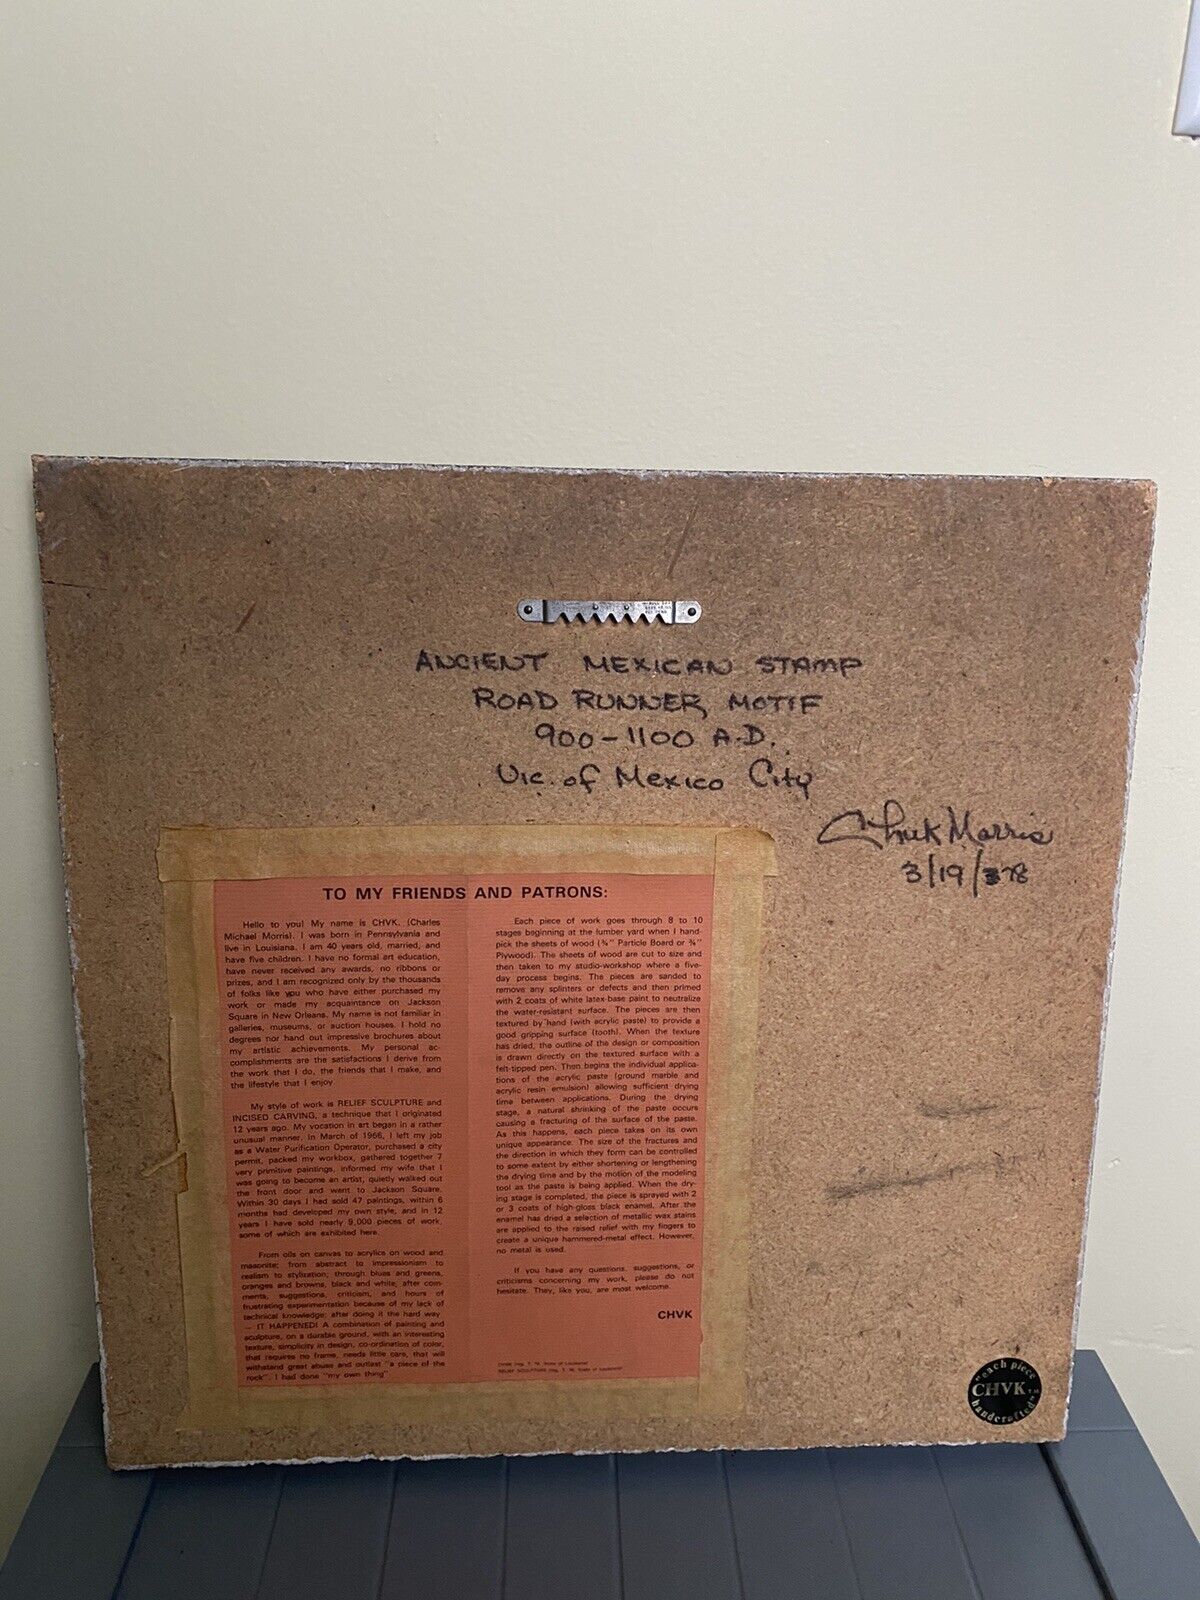 ANCIENT MEXICAN STAMP
ROAD RUNNER MOTIF
900-1100 A.D.
Vic. of Mexico City
Chuck Morris
3/19/78
TO MY FRIENDS AND PATRONS:
Hello to you! My name is CHVK, (Charles
Michael Morris). I was born in Pennsylvania and
live in Louisiana. I am 40 years old, married, and
have five children. I have no formal art education,
have never received any awards, no ribbons or
prizes, and I am recognized only by the thousands
of folks like you who have either purchased my
work or made my acquaintance on Jackson
Square in New Orleans. My name is not familiar in
galleries, museums, or auction houses. I hold no
degrees nor hand out impressive brochures about
my artistic achievements. My personal ac-
complishments are the satisfactions I derive from
the work that I do, the friends that I make, and
the lifestyle that I enjoy
My style of work is RELIEF SCULPTURE and
INCISED CARVING, a technique that I originated
12 years ago. My vocation in art began in a rather
unusual manner. In March of 1966, I left my job
as a Water Purification Operator, purchased a city
permit, packed my workbox, gathered together 7
very primitive paintings, informed my wife that I
was going to become an artist, quietly walked out
the front door and went to Jackson Square.
Within 30 days I had sold 47 paintings, within 6
months had developed my own style, and in 12
years I have sold nearly 9,000 pieces of work,
some of which are exhibited here.
From oils on canvas to acrylics on wood and
masonite; from abstract to impressionism to
realism to stylization; through blues and greens,
oranges and browns, black and white; after com-
ments, suggestions, criticism, and hours of
frustrating experimentation because of my lack of
technical knowledge; after doing it the hard way
— IT HAPPENED! A combination of painting and
sculpture, on a durable ground, with an interesting
texture, simplicity in design, co-ordination of color,
that requires no frame, needs little care, that will
withstand great abuse and outlast "a piece of the
rock". I had done "my own thing"
Each piece of work goes through 8 to 10
stages beginning at the lumber yard when I hand-
pick the sheets of wood (¾" Particle Board or ¾"
Plywood). The sheets of wood are cut to size and
then taken to my studio-workshop where a five-
day process begins. The pieces are sanded to
remove any splinters or defects and then primed
with 2 coats of white latex-base paint to neutralize
the water-resistant surface. The pieces are then
textured by hand (with acrylic paste) to provide a
good gripping surface (tooth). When the texture
has dried, the outline of the design or composition
is drawn directly on the textured surface with a
felt-tipped pen. Then begins the individual applica-
tions of the acrylic paste (ground marble and
acrylic resin emulsion) allowing sufficient drying
time between applications. During the drying
stage, a natural shrinking of the paste occurs
causing a fracturing of the surface of the paste.
As this happens, each piece takes on its own
unique appearance. The size of the fractures and
the direction in which they form can be controlled
to some extent by either shortening or lengthening
the drying time and by the motion of the modeling
tool as the paste is being applied. When the dry-
ing stage is completed, the piece is sprayed with 2
or 3 coats of high-gloss black enamel. After the
enamel has dried a selection of metallic wax stains
are applied to the raised relief with my fingers to
create a unique hammered-metal effect. However,
no metal is used.
If you have any questions, suggestions, or
criticisms concerning my work, please do not
hesitate. They, like you, are most welcome.
CHVK
CHVK (reg. T. M. State of Louisiana)
RELIEF SCULPTURE (reg. T. M. State of Louisiana)
"each piece
CHVK
handcrafted"